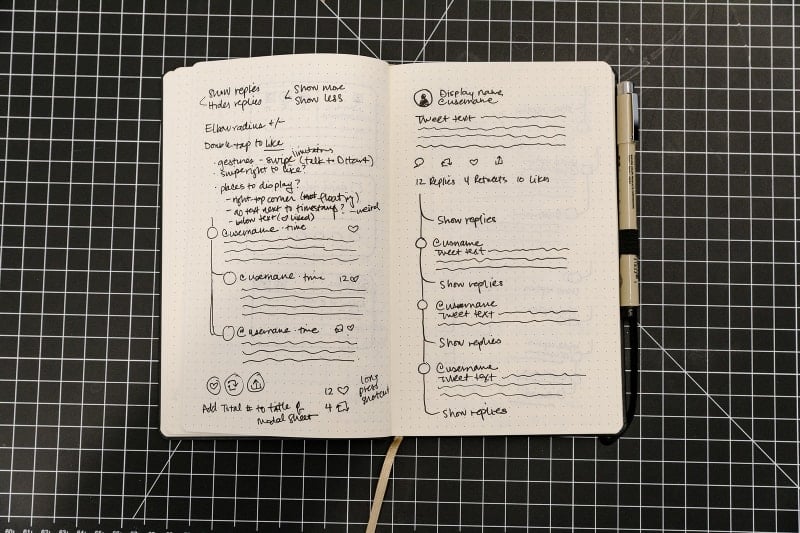 Show replies
Hides replies
Show more
Show less
Elbow radius +/-
Double tap to like
· gestures - swipe limitations (talk to Dhart)
swipe right to like?
· places to display?
- right top corner (not floating)
- no text next to timestamp? - weird
- below text (♡ liked)
@username · time ♡
@username · time 12 ♡
@username · time ♡
12 ♡
4
long press shortcut
Add Total # to title of
modal sheet
Display name
@username
Tweet text
12 Replies 4 Retweets 10 Likes
Show replies
@username
Tweet text
Show replies
@username
Tweet text
Show replies
@username
Tweet text
Show replies